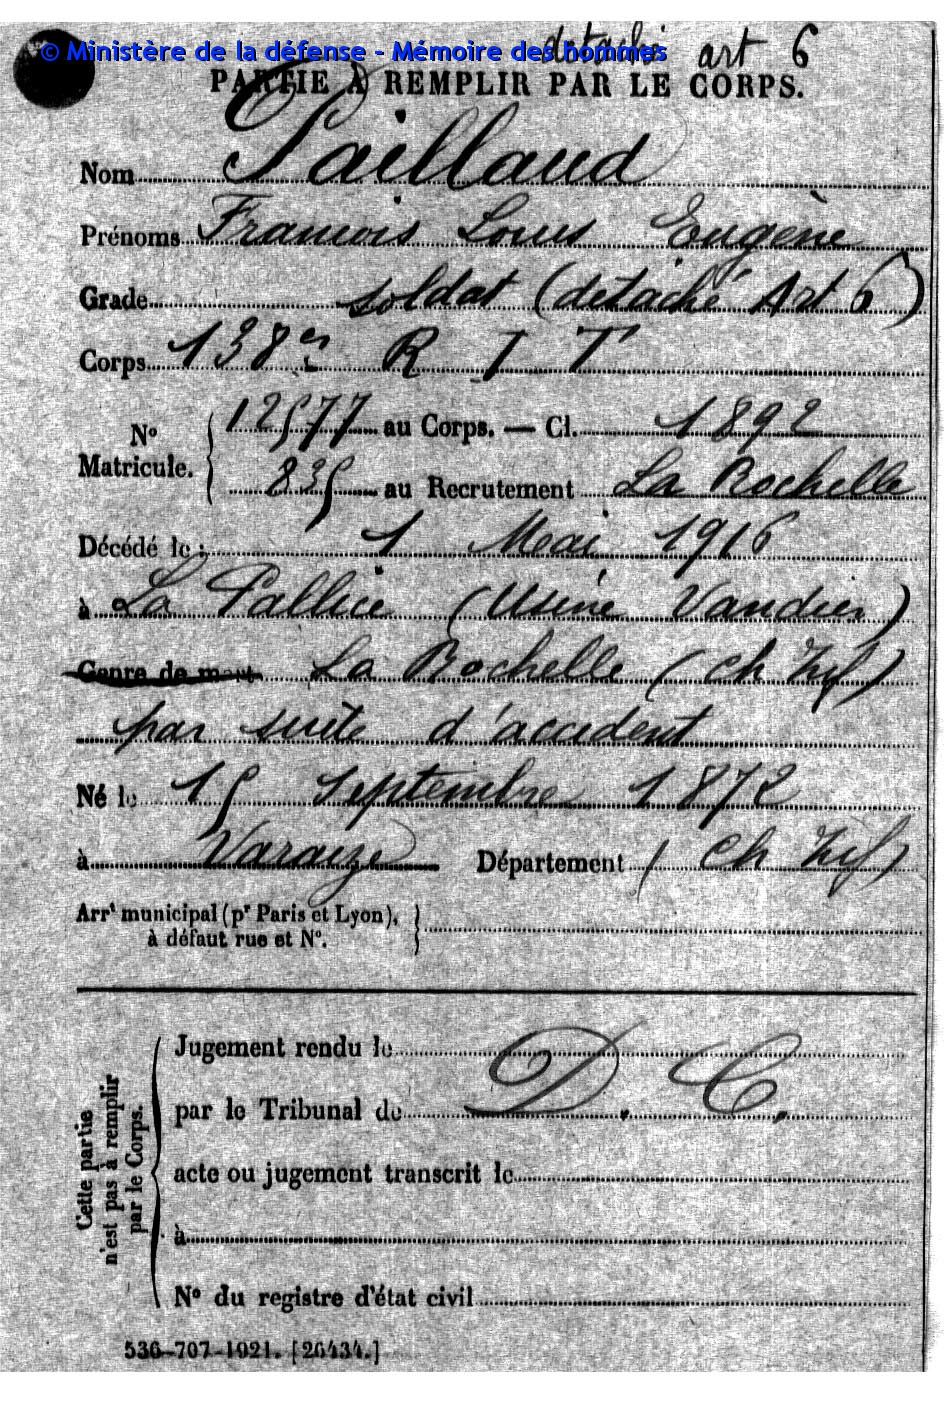 © Ministère de la défense - Mémoire des hommes
détaché art 6
PARTIE À REMPLIR PAR LE CORPS.
Nom Paillaud
Prénoms François Louis Eugène
Grade soldat (détaché Art 6)
Corps 138e R I T
No Matricule. 12577 au Corps. — Cl. 1892
835 au Recrutement La Rochelle
Décédé le : 1 Mai 1916
à La Pallice (Usine Vandier)
Genre de mort La Rochelle (Ch Inf)
par suite d'accident
Né le 15 Septembre 1872
à Varaize Département (Ch Inf)
Arrt municipal (pr Paris et Lyon),
à défaut rue et No.
Cette partie
n'est pas à remplir
par le Corps.
Jugement rendu le
par le Tribunal de D. C.
acte ou jugement transcrit le
à
No du registre d'état civil
536-707-1921. [26434.]